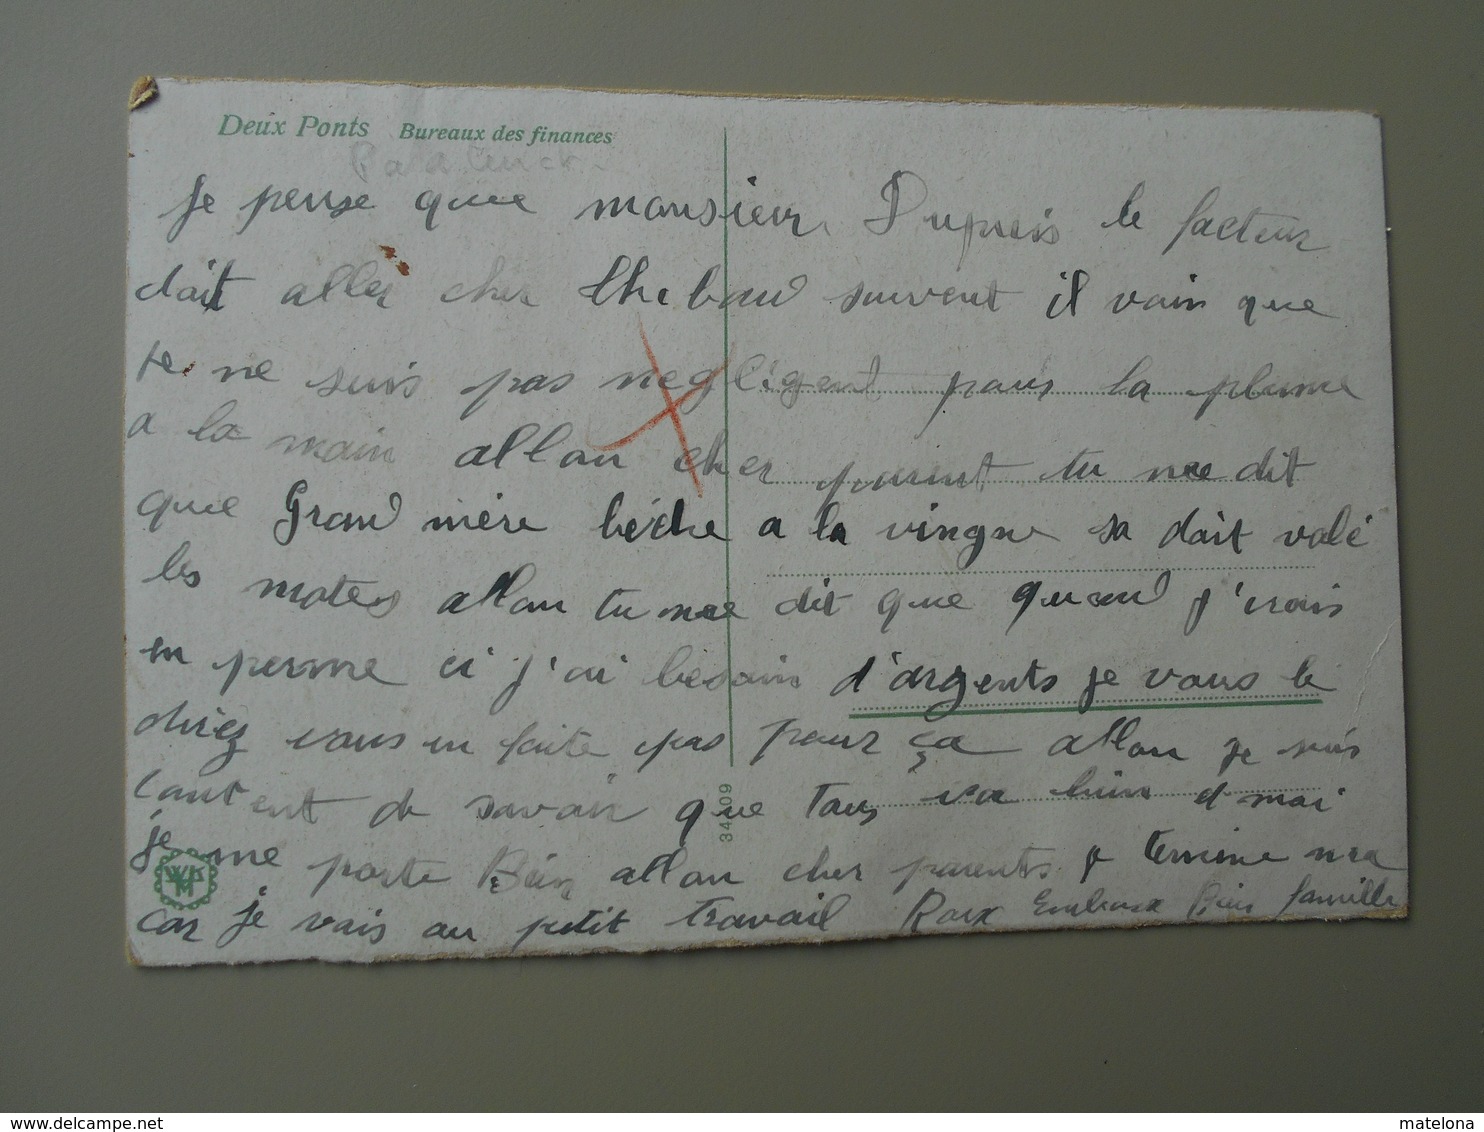 Deux Ponts Bureaux des finances
Je pense quee monsieur Dupuis le facteur
dait aller cher thebaud souvent il vain que
je ne suis pas negligent pour la plume
a la main allon cher parent tu me dit
que Grand mère bèche a la vingne sa dait valé
les motes allon tu me dit que quand j'irais
en perme ci j'ai besoin d'argents je vous le
direz vous en faite pas pour ça allon je suis
content de savoir que tous va bien et moi
je me porte Bien allon cher parents je termine ma
car je vais au petit travail Roux Embrasse Bien famille
34409
www.delcampe.net
matelona